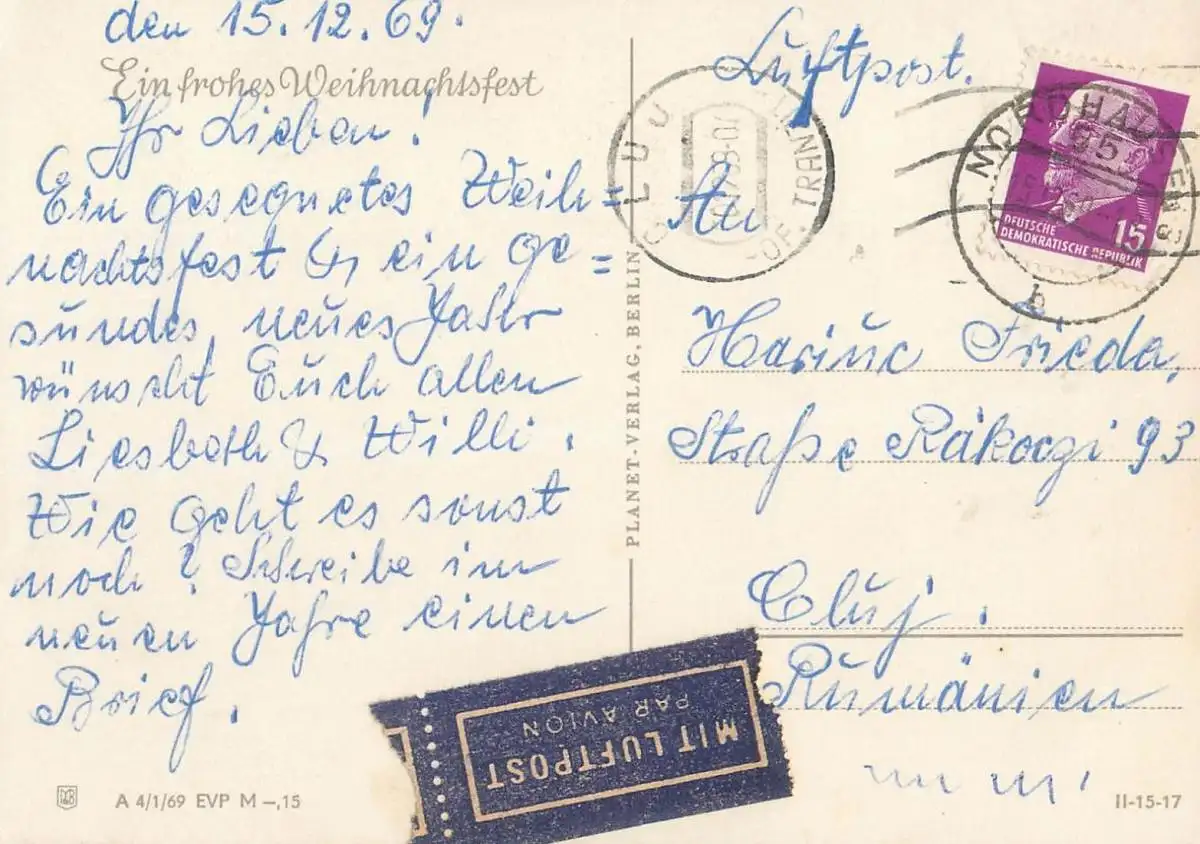 den 15.12.69.
Ein frohes Weihnachtsfest
Ihr Lieben!
Ein gesegnetes Weih=
nachtsfest & ein ge=
sundes, neues Jahr
wünscht Euch allen
Liesbeth & Willi.
Wie geht es sonst
noch? Schreibe im
neuen Jahre einen
Brief.
A 4/1/69 EVP M –,15
PLANET-VERLAG, BERLIN
Luftpost.
CLUJ
OF. TRANZIT
NORDHAUSEN 3
55
b
DEUTSCHE
DEMOKRATISCHE REPUBLIK
15
An
Hariuc Frieda,
Straße Rákoczi 93
Cluj.
Rumänien
MIT LUFTPOST
PAR AVION
II-15-17